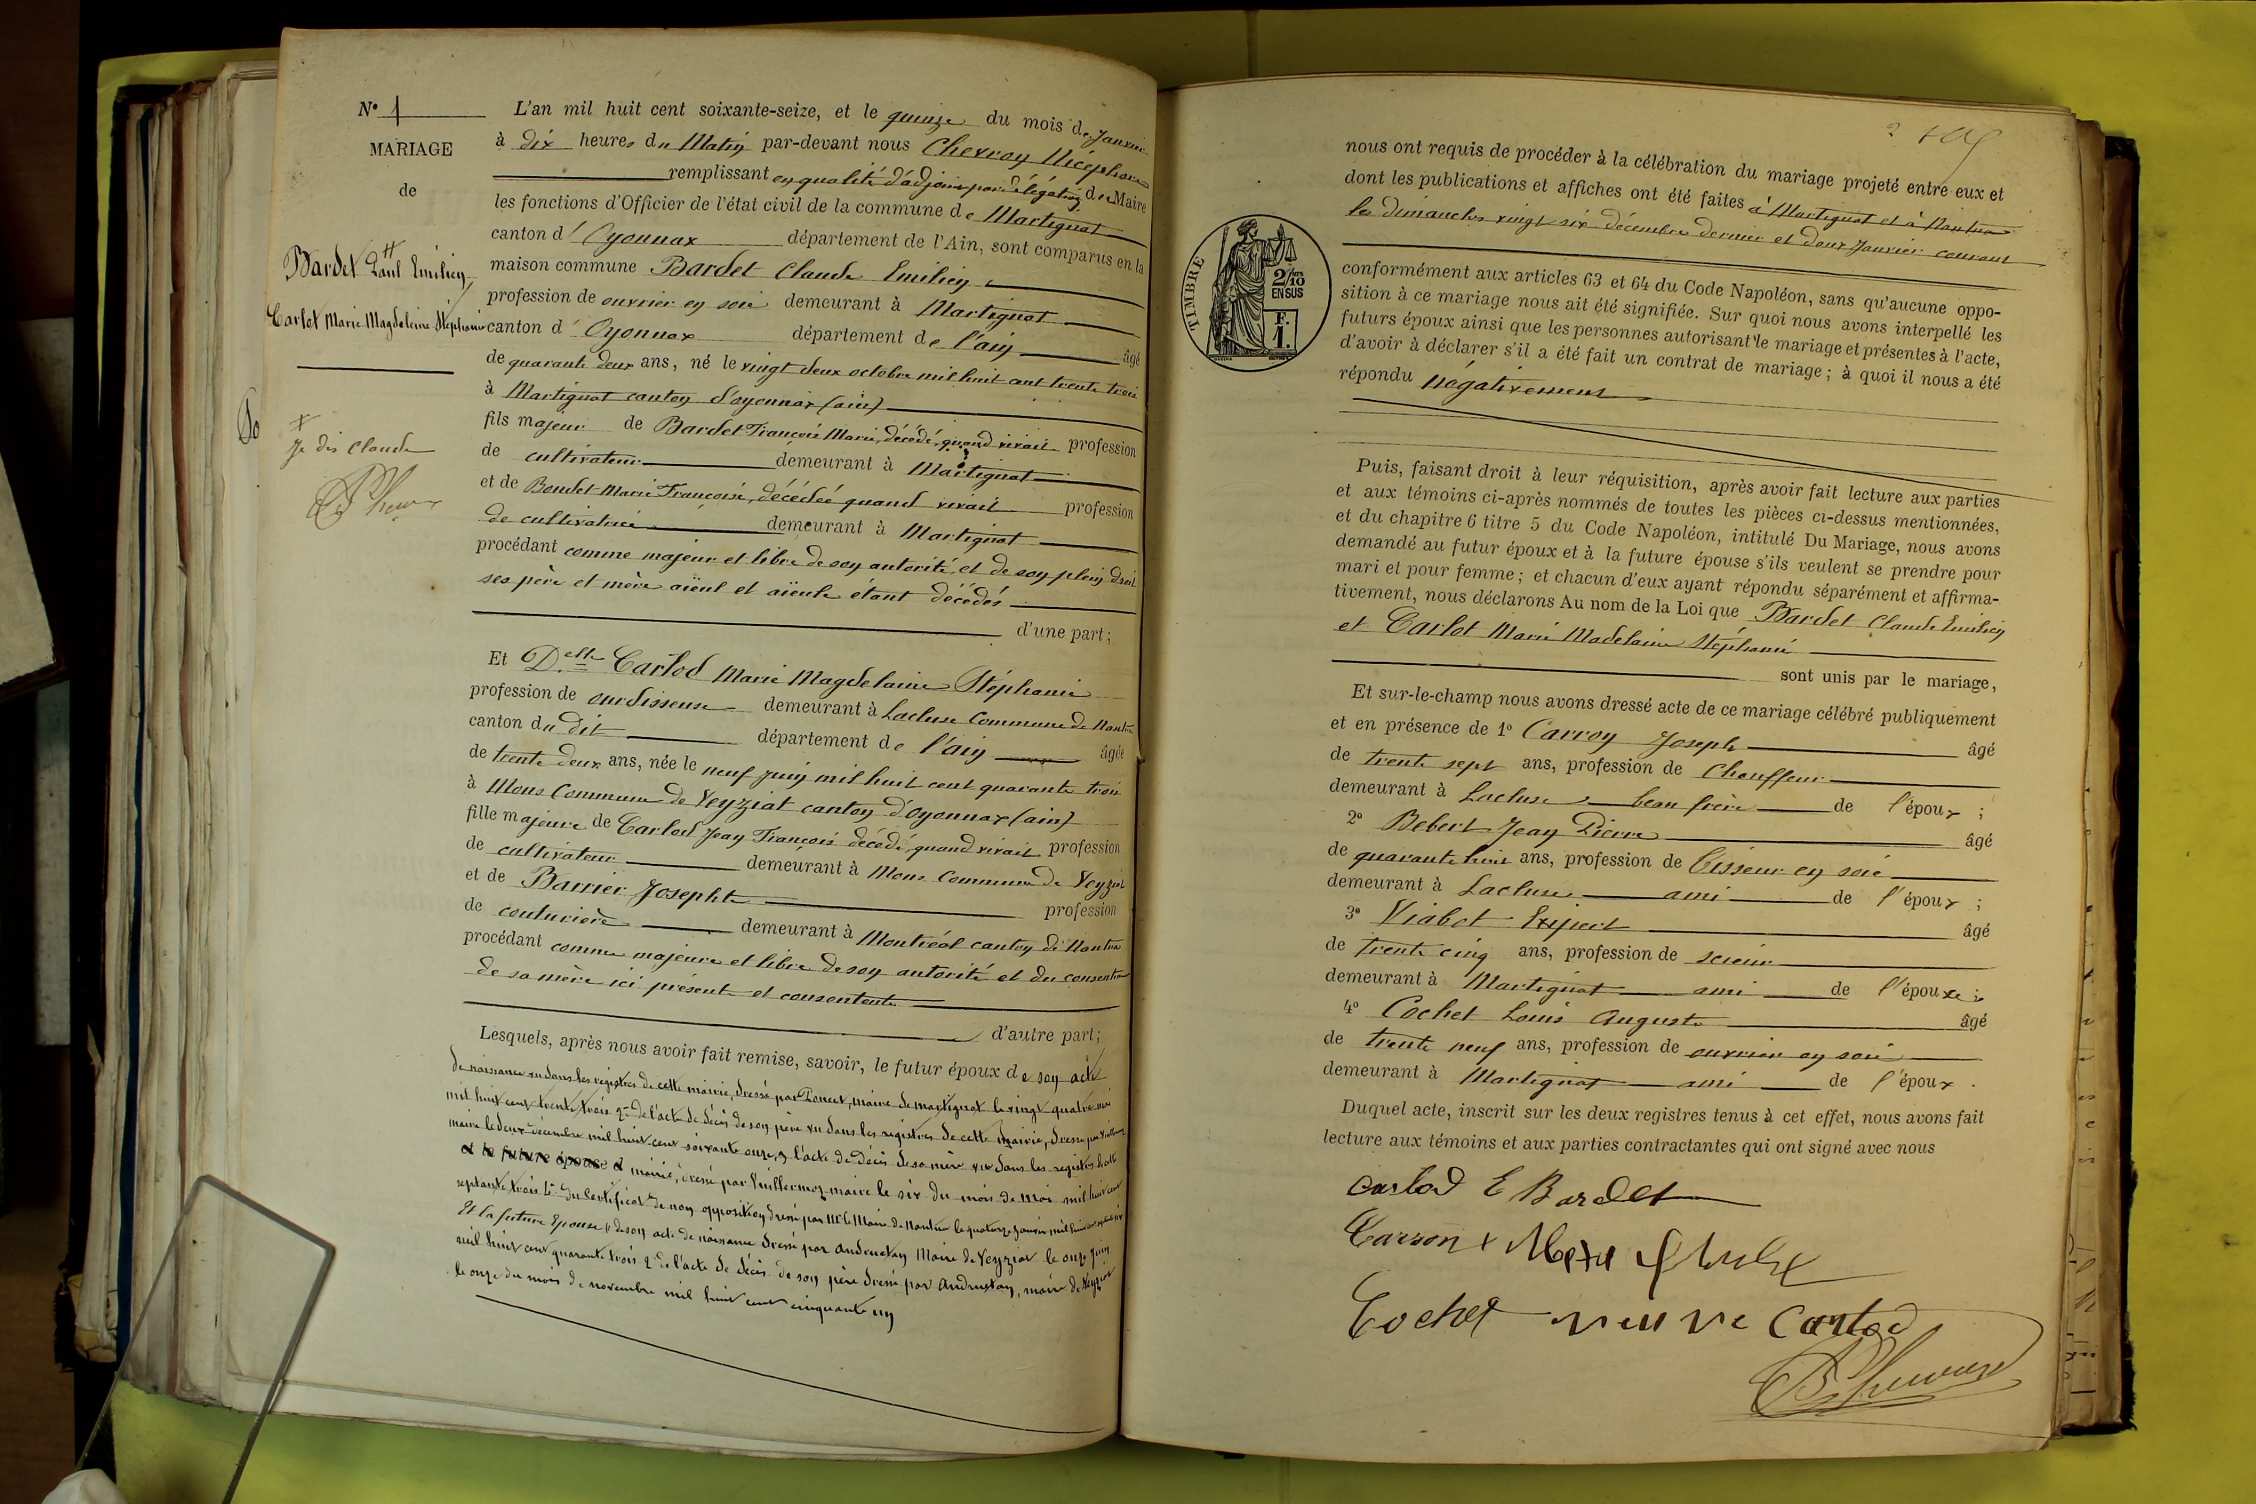 N° 1
MARIAGE
de
Bardet Paul Emilien
Carlot Marie Magdeleine Stéphanie
Je dis Claude
L'an mil huit cent soixante-seize, et le quinze du mois de Janvier
à dix heures du Matin par-devant nous Chevroy Nicéphore
remplissant en qualité d'adjoint par délégation de Maire
les fonctions d'Officier de l'état civil de la commune de Martignat
canton d'Oyonnax département de l'Ain, sont comparus en la
maison commune Bardet Claude Emilien
profession de ouvrier en soie demeurant à Martignat
canton d'Oyonnax département de l'ain âgé
de quarante deux ans, né le vingt deux octobre mil huit cent trente trois
à Martignat canton d'oyonnax (ain)
fils majeur de Bardet François Marie, décédé, quand vivait profession
de cultivateur demeurant à Martignat
et de Bondet Marie Françoise, décédée quand vivait profession
de cultivatrice demeurant à Martignat
procédant comme majeur et libre de son autorité et de son plein droit
ses père et mère aïeul et aïeule étant décédés
d'une part;
Et Delle Carlod Marie Magdelaine Stéphanie
profession de ourdisseuse demeurant à Lacluse Commune de Nantua
canton du dit département de l'ain âgée
de trente deux ans, née le neuf juin mil huit cent quarante trois
à Mons Commune de Veyziat canton d'Oyonnax (ain)
fille majeure de Carlod Jean François décédé, quand vivait profession
de cultivateur demeurant à Mons Commune de Veyziat
et de Barrier Josephte profession
de couturière demeurant à Montréal canton de Nantua
procédant comme majeure et libre de son autorité et du consentem
de sa mère ici présente et consentente
d'autre part;
Lesquels, après nous avoir fait remise, savoir, le futur époux de son acte
de naissance vu dans les registres de cette mairie, dressé par Poncet, maire de martignat le vingt quatre
mil huit cent trente trois 2° de l'acte de décès de son père vu dans les registres de cette mairie, dressé par
maire le deux décembre mil huit cent soixante onze, 3 l'acte de décès de sa mère vu dans les registres de cette
et la future épouse d mairie, dressé par Vuillermoz maire le six du mois de Mai mil huit cent
septante trois 4° du Certificat de non opposition dressé par Mr le Maire de Nantua le quatorze Janvier mil huit cent
Et la future Epouse 1° de son acte de naissance dressé par Andruetan Maire de Veyziat le onze Juin
mil huit cent quarante trois 2° de l'acte de décès de son père dressé par Andruetan, maire de Veyziat
le onze du mois de novembre mil huit cent cinquante un
nous ont requis de procéder à la célébration du mariage projeté entre eux et
dont les publications et affiches ont été faites à Martignat et à Nantua
les dimanches vingt six décembre dernier et deux Janvier courant
TIMBRE
2/10
EN SUS
F.
1.
conformément aux articles 63 et 64 du Code Napoléon, sans qu'aucune oppo-
sition à ce mariage nous ait été signifiée. Sur quoi nous avons interpellé les
futurs époux ainsi que les personnes autorisant le mariage et présentes à l'acte,
d'avoir à déclarer s'il a été fait un contrat de mariage; à quoi il nous a été
répondu négativement
Puis, faisant droit à leur réquisition, après avoir fait lecture aux parties
et aux témoins ci-après nommés de toutes les pièces ci-dessus mentionnées,
et du chapitre 6 titre 5 du Code Napoléon, intitulé Du Mariage, nous avons
demandé au futur époux et à la future épouse s'ils veulent se prendre pour
mari et pour femme; et chacun d'eux ayant répondu séparément et affirma-
tivement, nous déclarons Au nom de la Loi que Bardet Claude Emilien
et Carlot Marie Madelaine Stéphanie
sont unis par le mariage,
Et sur-le-champ nous avons dressé acte de ce mariage célébré publiquement
et en présence de 1° Carroy Joseph âgé
de trente sept ans, profession de Chauffeur
demeurant à Lacluse beau frère de l'époux;
2° Bebert Jean Pierre âgé
de quarante huit ans, profession de tisseur en soie
demeurant à Lacluse ami de l'époux;
3° Viabot Expert âgé
de trente cinq ans, profession de scieur
demeurant à Martignat ami de l'épouxe;
4° Cochet Louis Auguste âgé
de trente neuf ans, profession de ouvrier en soie
demeurant à Martignat ami de l'époux.
Duquel acte, inscrit sur les deux registres tenus à cet effet, nous avons fait
lecture aux témoins et aux parties contractantes qui ont signé avec nous
Carlod E Bardet
Cochet veuve Carlod